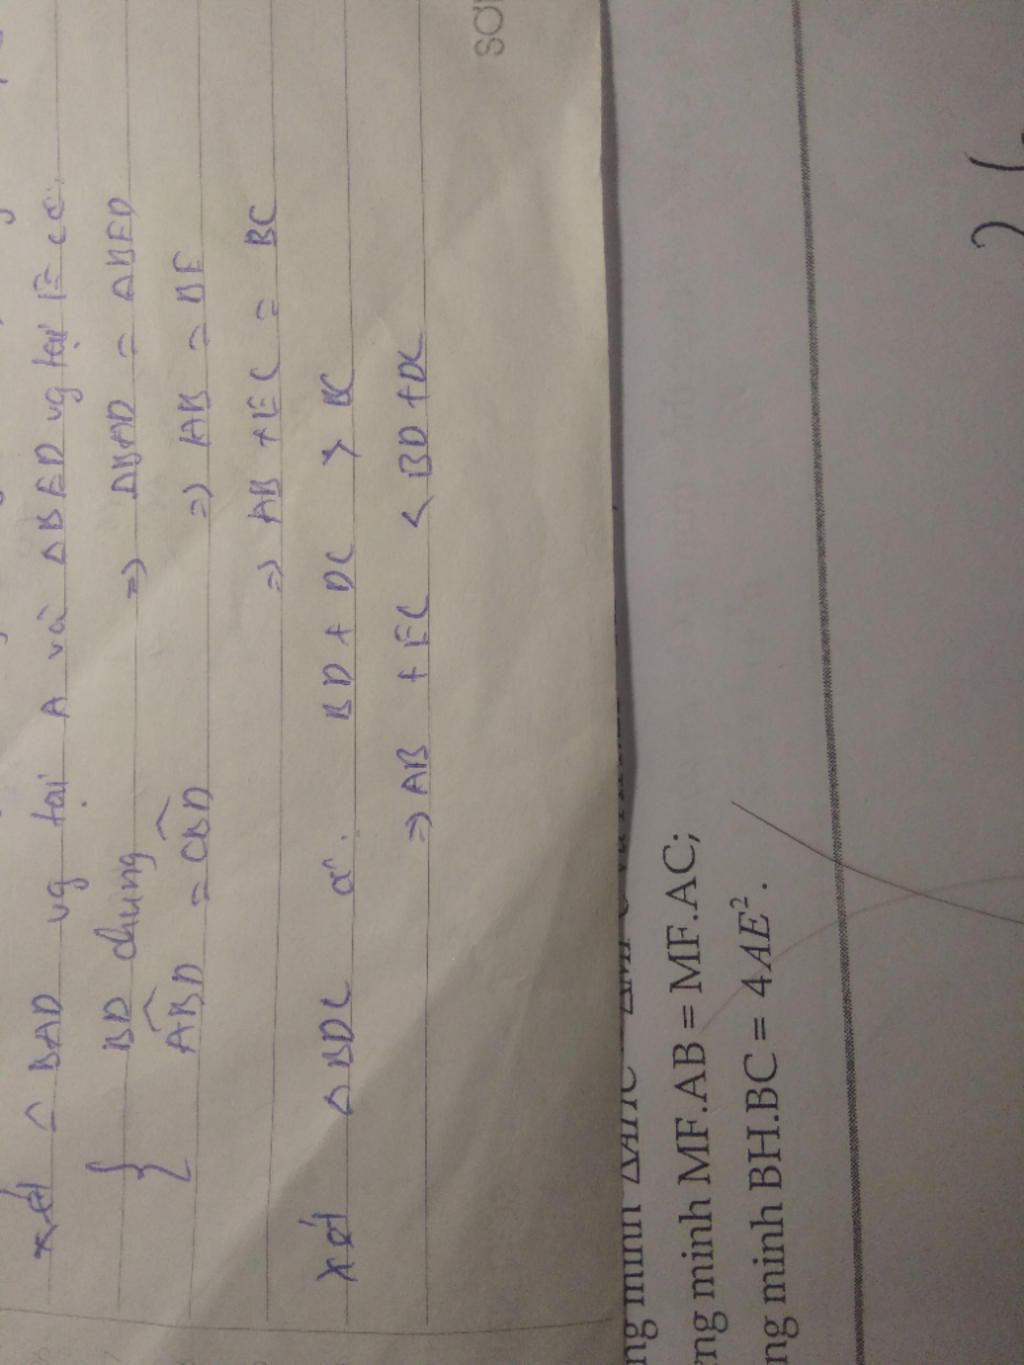 xét △ BAD vg tại A và △BED vg tại E có
BD chung => △BAD = △BED
ABD = CBD => AB = BE
=> AB + EC = BC
xét △ BDC có BD + DC > BC
=> AB + EC < BD + DC
SƠ
ng minh ΔAHC
ng minh MF.AB = MF.AC;
ng minh BH.BC = 4AE².